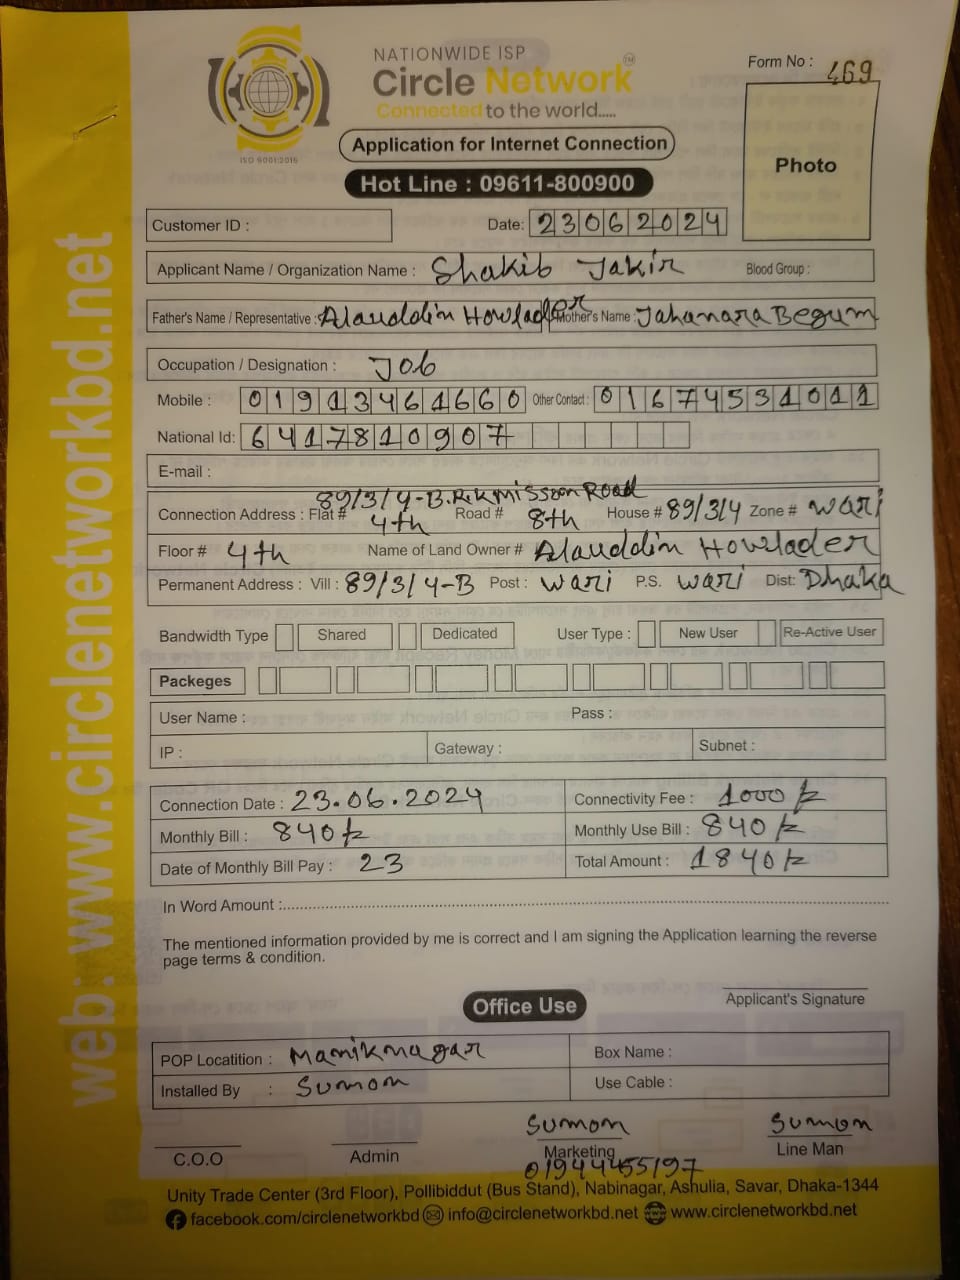 NATIONWIDE ISP
Circle Network TM
Connected to the world.....
ISO 9001:2015
Form No : 469
Application for Internet Connection
Photo
Hot Line : 09611-800900
Customer ID :
Date: 23062024
Applicant Name / Organization Name : Shakib Jakir Blood Group :
Father's Name / Representative : Alauddin Howlader Mother's Name : Jahanara Begum
Occupation / Designation : Job
Mobile : 01913461660 Other Contact : 01674531011
National Id: 6417810907
E-mail :
89/3/4-B.R.K Mission Road
Connection Address : Flat # 4th Road # 8th House # 89/3/4 Zone # wari
Floor # 4th Name of Land Owner # Alauddin Howlader
Permanent Address : Vill : 89/3/4-B Post : wari P.S. wari Dist: Dhaka
Bandwidth Type Shared Dedicated User Type : New User Re-Active User
Packeges
User Name : Pass :
IP : Gateway : Subnet :
Connection Date : 23.06.2024 Connectivity Fee : 1000/-
Monthly Bill : 840/- Monthly Use Bill : 840/-
Date of Monthly Bill Pay : 23 Total Amount : 1840/-
In Word Amount :
The mentioned information provided by me is correct and I am signing the Application learning the reverse
page terms & condition.
Applicant's Signature
Office Use
POP Locatition : Maniknagar Box Name :
Installed By : Sumon Use Cable :
Sumon Sumon
C.O.O Admin Marketing Line Man
01944455197
Unity Trade Center (3rd Floor), Pollibiddut (Bus Stand), Nabinagar, Ashulia, Savar, Dhaka-1344
facebook.com/circlenetworkbd info@circlenetworkbd.net www.circlenetworkbd.net
web: www.circlenetworkbd.net